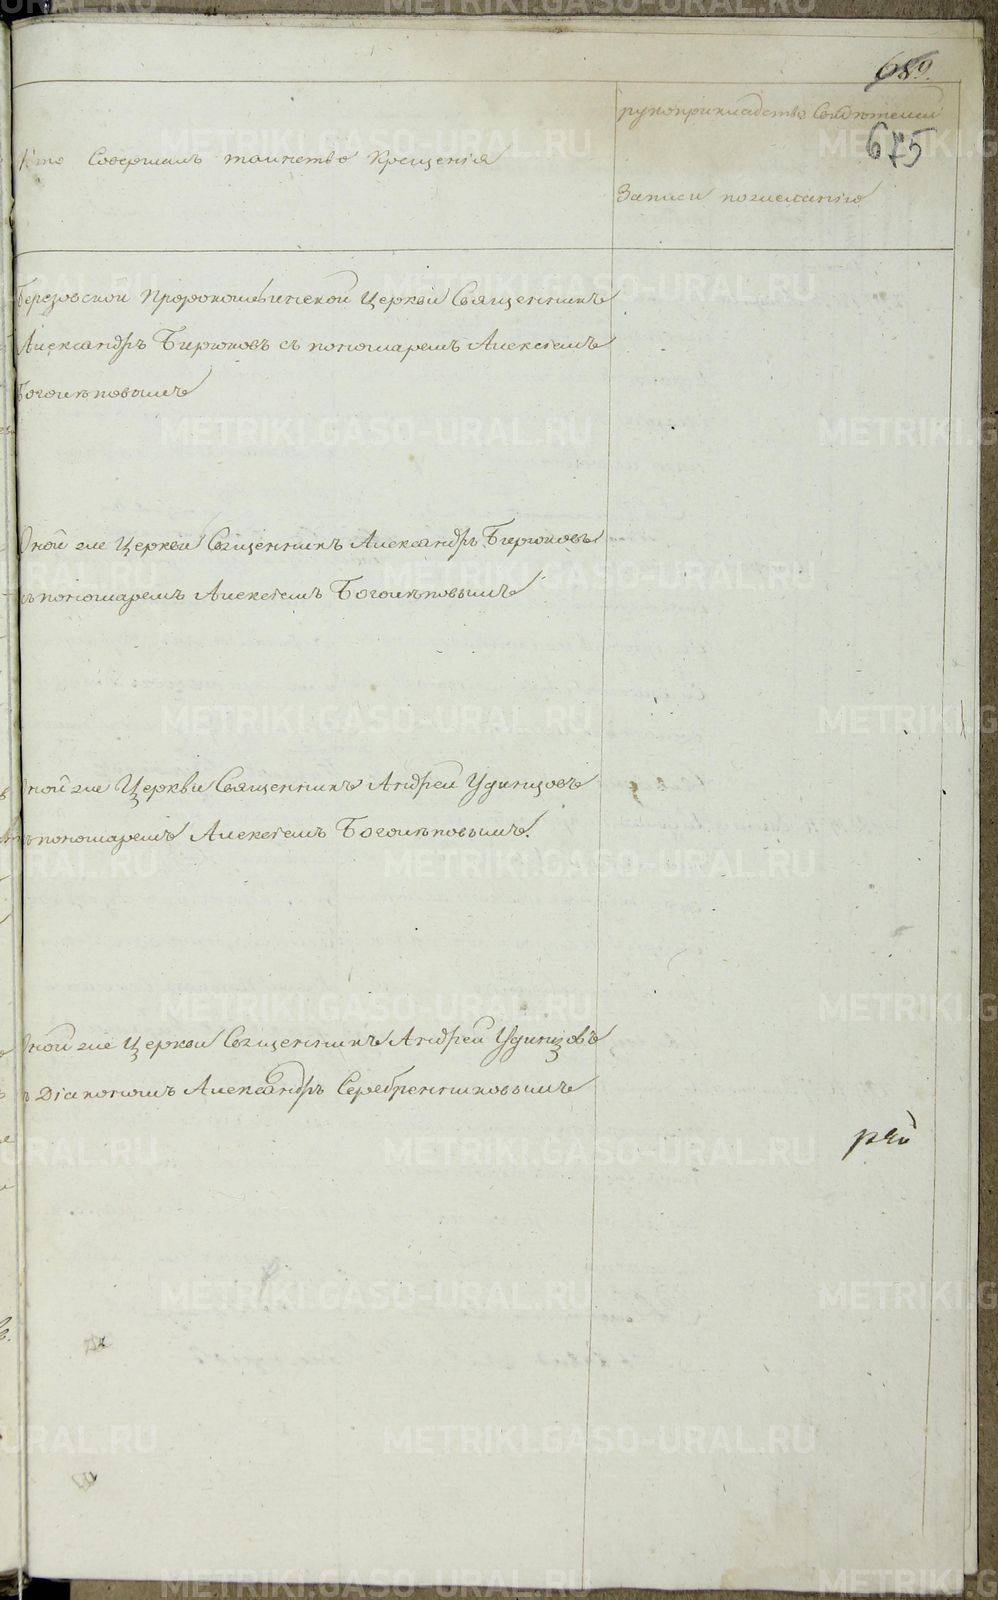 689.
675
Кто Совершалъ таинство Крещенія
рукоприкладство Свидѣтелей
Записи по желанію
Березовской Пророкоильинской Церкви Священникъ
Александръ Бирюковъ съ пономаремъ Алексѣемъ
Боголѣповымъ
Оной же Церкви Священникъ Александръ Бирюковъ
съ пономаремъ Алексѣемъ Боголѣповымъ
Оной же Церкви Священникъ Андрей Удинцовъ
съ пономаремъ Алексѣемъ Боголѣповымъ.
Оной же Церкви Священникъ Андрей Удинцовъ
съ Діакономъ Александръ Серебренниковымъ
METRIKI.GASO-URAL.RU